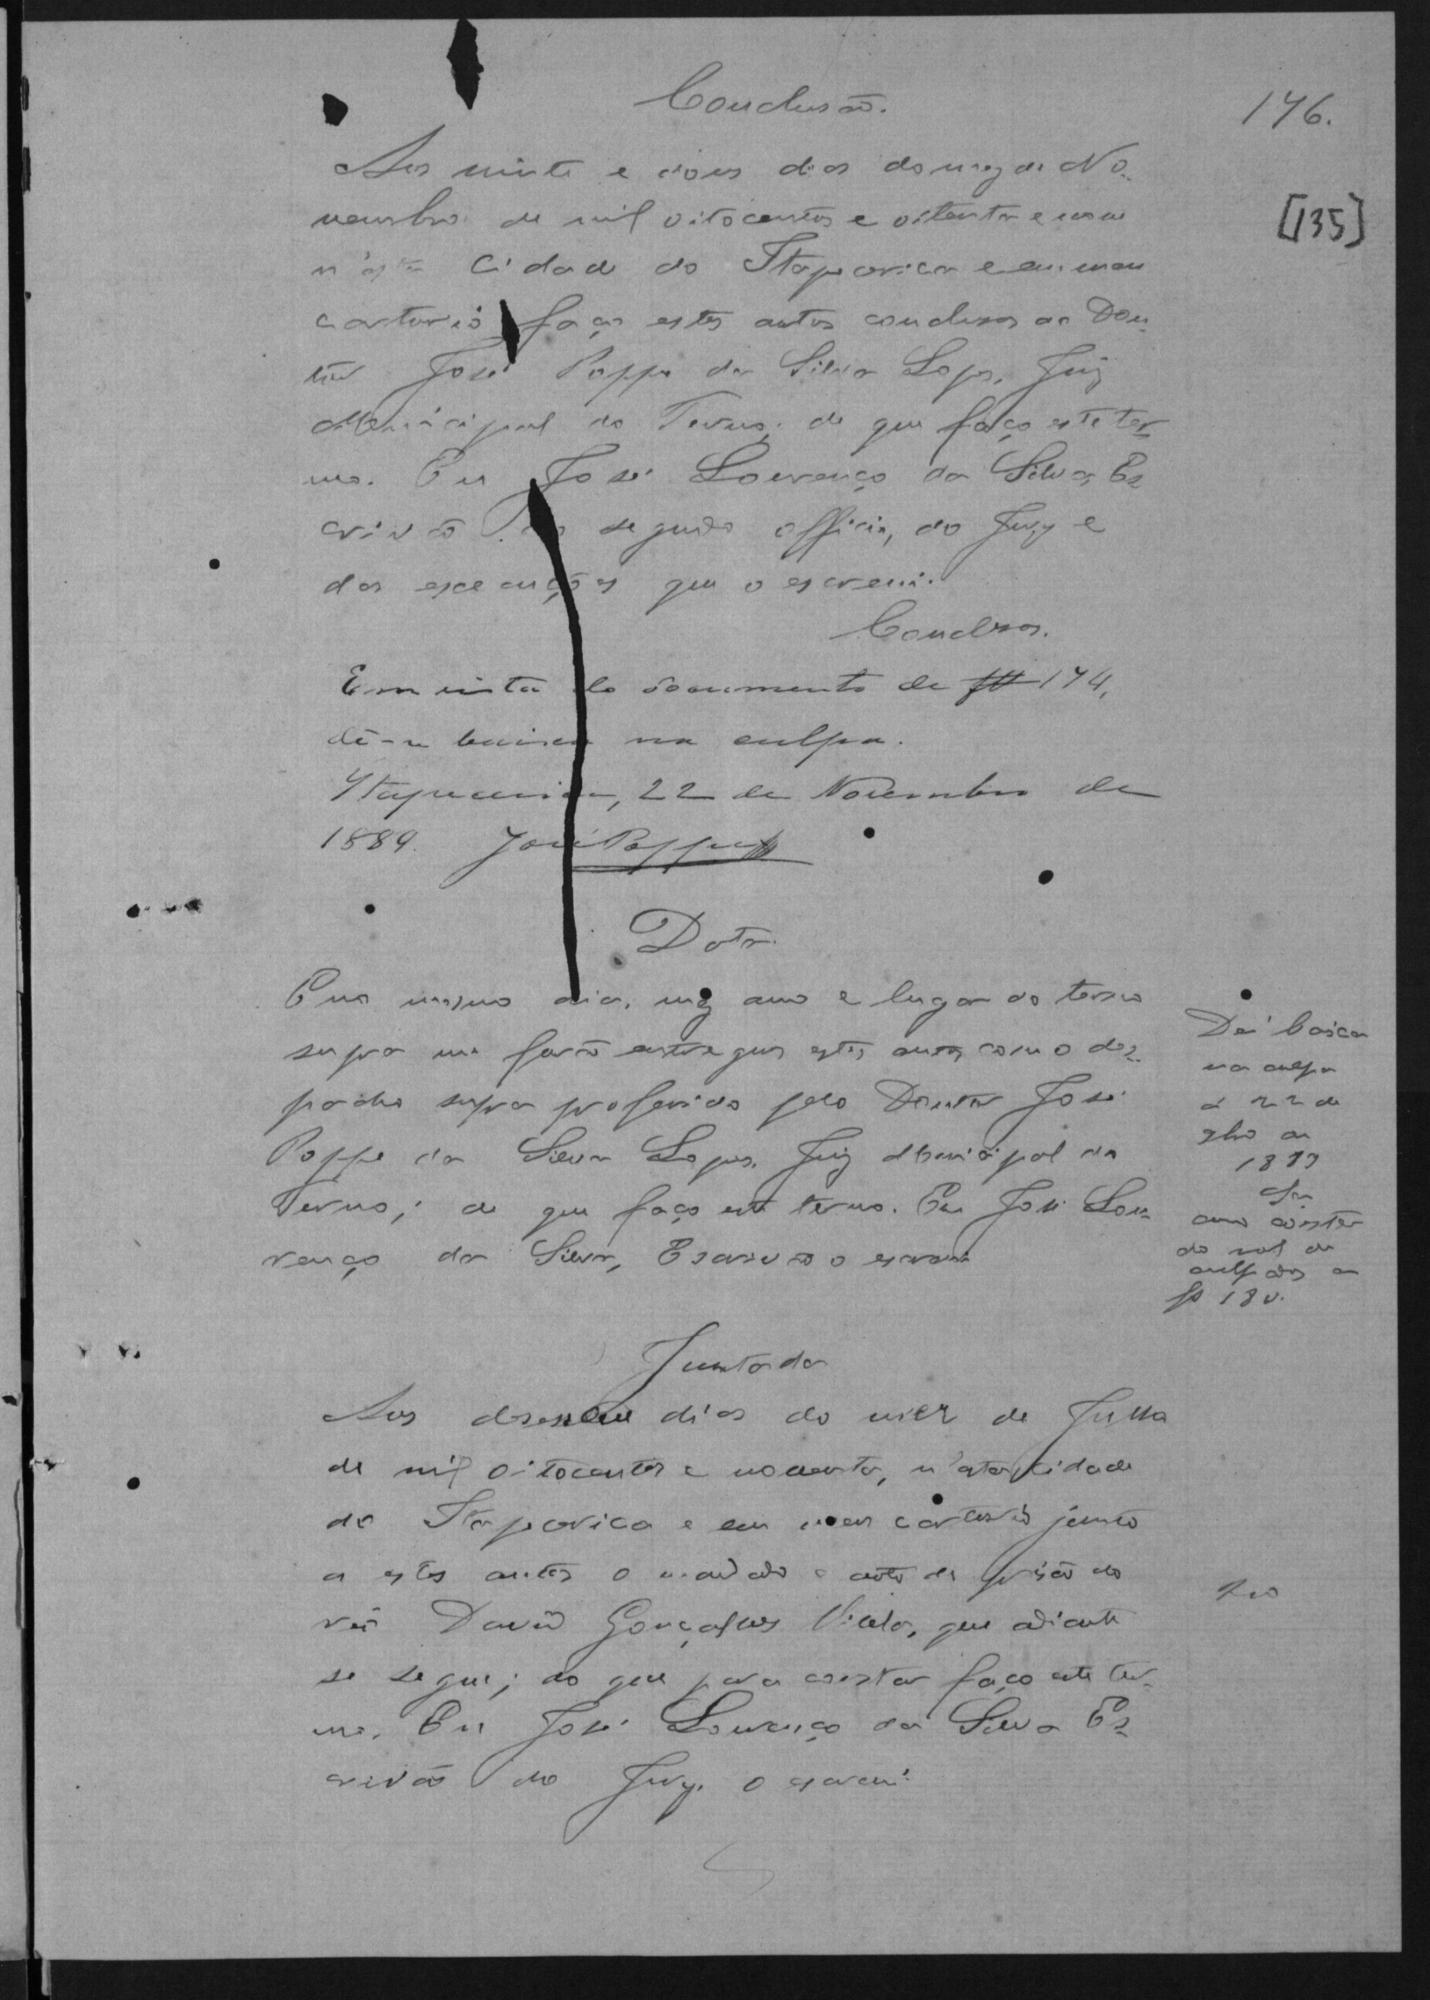 Conclusão.
176.
[135]
Aos vinte e dous dias do mez de No-
vembro de mil oitocentos e oitenta e nove
n'esta Cidade do Itaparica e em meu
cartorio faço estes autos conclusos ao Dou-
tor José Poppe da Silva Lopes, Juiz
Municipal do Termo; de que faço este ter-
mo. Eu José Lourenço da Silva, Es-
crivão do segundo officio, do Jury e
das execuções que o escrevi.
Conclusos.
Em vista do documento de fl 174,
dê-se baixa na culpa.
Itaparica, 22 de Novembro de
1889. José Poppe
Data
E no mesmo dia, mez anno e lugar do termo
supra me forão entregues estes autos com o des-
pacho supra proferido pelo Doutor José
Poppe da Silva Lopes, Juiz Municipal do
Termo; de que faço este termo. Eu José Lou-
renço da Silva, Escrivão o escrevi
Dei baixa
na culpa
a 22 de
9bro de
1889
como consta
do rol de
culpados a
fs 18 v.
Juntada
Aos dias do mez de Julho
de mil oitocentos e noventa, n'esta Cidade
de Itaparica e em meu cartorio junto
a estes autos o mandado e auto de prisão do
réo David Gonçalves, que adiante
se segue; do que para constar faço este ter-
mo. Eu José Lourenço da Silva Es-
crivão do Jury o escrevi.